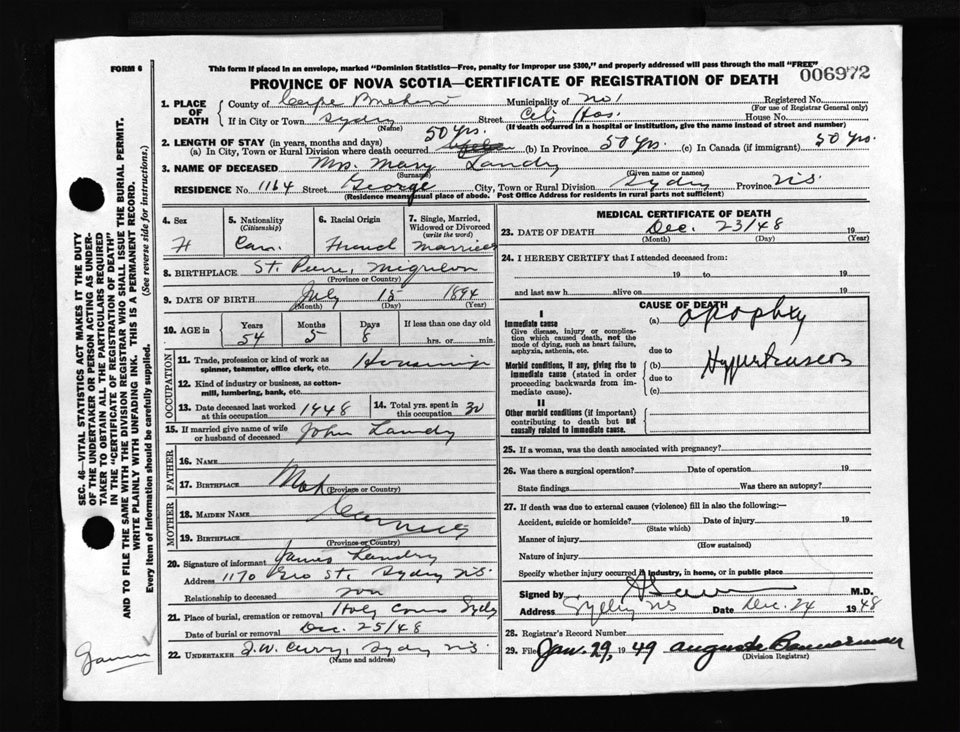 FORM 6
This form if placed in an envelope, marked "Dominion Statistics—Free, penalty for improper use $300," and properly addressed will pass through the mail "FREE"
PROVINCE OF NOVA SCOTIA—CERTIFICATE OF REGISTRATION OF DEATH
006972
1. PLACE OF DEATH
County of Cape Breton Municipality of No 1 Registered No.
(For use of Registrar General only)
If in City or Town Sydney Street City Hos. House No.
(Name) (If death occurred in a hospital or institution, give the name instead of street and number)
2. LENGTH OF STAY (in years, months and days)
(a) In City, Town or Rural Division where death occurred 50 yrs. (b) In Province 50 yrs. (c) In Canada (if immigrant) 50 yrs
3. NAME OF DECEASED Mrs. Mary Landry
(Surname) (Given name or names)
RESIDENCE No. 1164 Street George City, Town or Rural Division Sydney Province N.S.
(Residence means usual place of abode. Post Office Address for residents in rural parts not sufficient)
4. Sex
5. Nationality (Citizenship) Can.
6. Racial Origin French
7. Single, Married, Widowed or Divorced (write the word) Married
8. BIRTHPLACE St. Pierre, Miquelon
(Province or Country)
9. DATE OF BIRTH July 15 1894
(Month) (Day) (Year)
10. AGE in Years 54 Months 5 Days 8 If less than one day old hrs. or min.
OCCUPATION
11. Trade, profession or kind of work as spinner, teamster, office clerk, etc.
12. Kind of industry or business, as cotton-mill, lumbering, bank, etc.
13. Date deceased last worked at this occupation 1948
14. Total yrs. spent in this occupation 30
15. If married give name of wife or husband of deceased John Landry
FATHER
16. Name
17. Birthplace
(Province or Country)
MOTHER
18. MAIDEN NAME
19. Birthplace
(Province or Country)
20. Signature of informant James Landry
Address 1170 Geo St. Sydney N.S.
Relationship to deceased son
21. Place of burial, cremation or removal Holy Cross Sydney
Date of burial or removal Dec. 25/48
22. UNDERTAKER J.W. Curry, Sydney N.S.
(Name and address)
MEDICAL CERTIFICATE OF DEATH
23. DATE OF DEATH Dec. 23/48
(Month) (Day) (Year)
24. I HEREBY CERTIFY that I attended deceased from:
19 to 19
and last saw h alive on 19
CAUSE OF DEATH
I
Immediate cause
Give disease, injury or complication which caused death, not the mode of dying, such as heart failure, asphyxia, asthenia, etc.
(a) apoplexy
due to
Morbid conditions, if any, giving rise to immediate cause (stated in order proceeding backwards from immediate cause).
(b) Hypertension
due to
(c)
II
Other morbid conditions (if important) contributing to death but not causally related to immediate cause.
25. If a woman, was the death associated with pregnancy?
26. Was there a surgical operation? Date of operation 19
State findings Was there an autopsy?
27. If death was due to external causes (violence) fill in also the following:—
Accident, suicide or homicide? Date of injury 19
(State which)
Manner of injury
(How sustained)
Nature of injury
Specify whether injury occurred in industry, in home, or in public place
Signed by M.D.
Address Sydney N.S. Date Dec. 24 1948
28. Registrar's Record Number
29. Filed Jan. 29, 1949 Bannerman
(Division Registrar)
SEC. 46—VITAL STATISTICS ACT MAKES IT THE DUTY
OF THE UNDERTAKER OR PERSON ACTING AS UNDERTAKER TO OBTAIN ALL THE PARTICULARS REQUIRED
IN THE "CERTIFICATE OF REGISTRATION OF DEATH"
AND TO FILE THE SAME WITH THE DIVISION REGISTRAR WHO SHALL ISSUE THE BURIAL PERMIT.
WRITE PLAINLY WITH UNFADING INK. THIS IS A PERMANENT RECORD.
Every item of information should be carefully supplied. (See reverse side for instructions.)